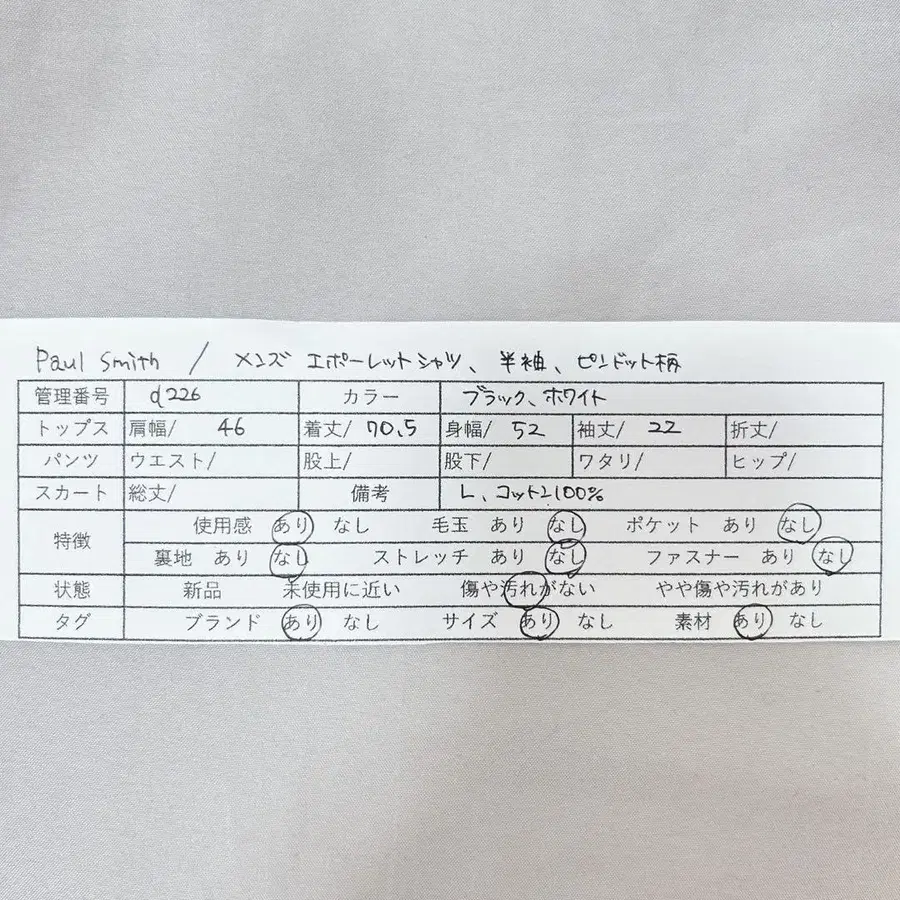 Paul Smith / メンズ エポーレットシャツ、半袖、ピンドット柄
管理番号 d226 カラー ブラック、ホワイト
トップス 肩幅/ 46 着丈/ 70.5 身幅/ 52 袖丈/ 22 折丈/
パンツ ウエスト/ 股上/ 股下/ ワタリ/ ヒップ/
スカート 総丈/ 備考 L、コットン100%
特徴 使用感 あり なし 毛玉 あり なし ポケット あり なし
裏地 あり なし ストレッチ あり なし ファスナー あり なし
状態 新品 未使用に近い 傷や汚れがない やや傷や汚れがあり
タグ ブランド あり なし サイズ あり なし 素材 あり なし